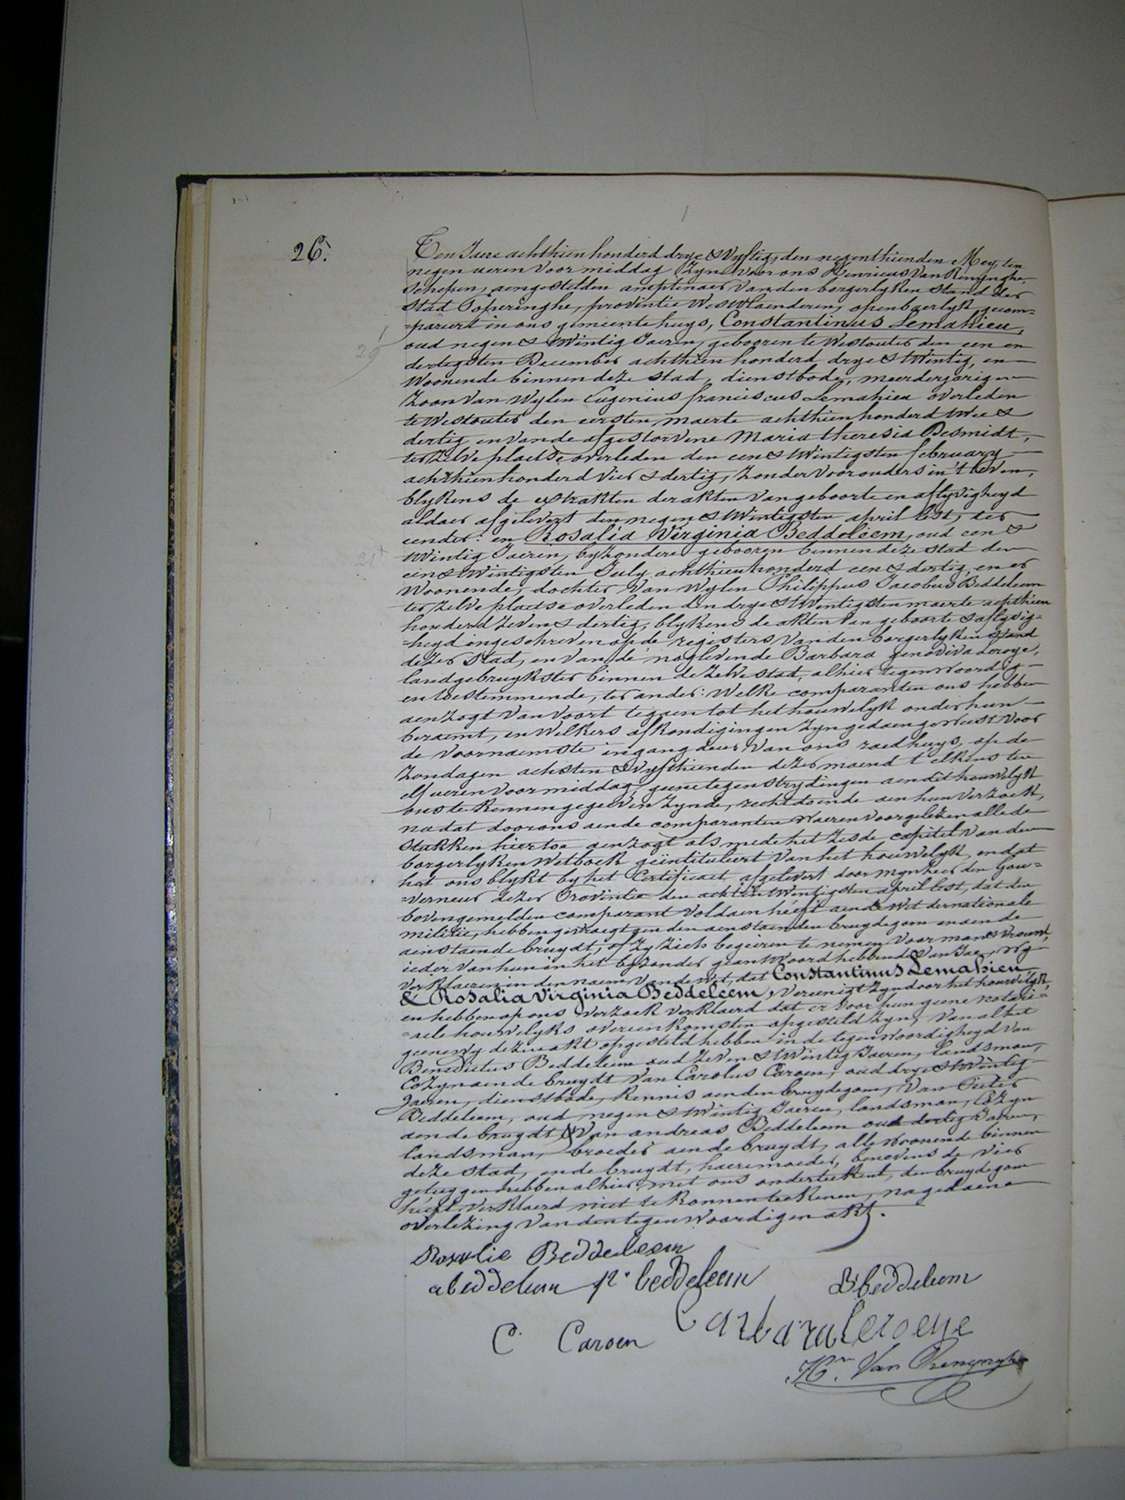 26.
Ten Jaere achthien honderd drye & vyftig, den negenthienden Mey, ten
negen ueren voormiddag Zyn voor ons Henricus Van Renynghe,
Schepen, aengestelden amptenaer van den borgerlyken Stand der
Stad Poperinghe, provintie Westvlaenderen, openbaerlyk gecom=
=pareert in ons gemeente huys, Constantinus Lemahieu,
oud negen & twintig Jaeren, gebooren te Westouter den een en
dertegsten December achthien honderd drye & twintig, en
Woonende binnen deze Stad, dienstbode, meerderjarigen
Zoon Van Wylen Eugenius franciscus Lemahieu overleden
te Westouter den eersten maerte achthien honderd twee &
dertig en van de afgestorvene Maria theresia Desmidt,
ter Zelve plaetse overleden den een & twintigsten february
achthien honderd vier & dertig, Zonder voorouders in 't leven,
blykens de extrakten der akten van geboorte en aflyvigheyd
aldaer afgelevert den negen & twintigsten april lest, ter
eender: en Rosalia Virginia Beddeleem, oud een &
twintig Jaeren, byzondere gebooren binnen deze stad den
een & twintigsten July achthien honderd een & dertig, en er
Woonende, dochter Van Wylen Philippus Jacobus Beddeleem
ter Zelve plaetse overleden den drye & twintigsten maerte achthien
honderd Zeven & dertig, blykens de akten van geboorte & aflyvig=
heyd ingeschreven op de registers van den borgerlyken stand
dezer Stad, en van de naglevende Barbara genoviva Leroye,
landgebruykster binnen de Zelve stad, alhier tegenwoordig
en toestemmende, ter ander: Welke comparanten ons hebben
aenzogt van voort te gaen tot het houwelyk onder hun
beraemt, en Welkers afkondigingen Zyn gedaen geweest voor
de voornaemste ingang deur van ons raedhuys, op de
Zondagen achsten & vyfthienden dezer maend t'elkens ten
elf ueren voormiddag, geene tegenstrydingen aen dit houwelyk
ons te kennen gegeven Zynde, recht doende aen hun verzoek,
na dat door ons aen de comparanten waeren voorgelezen alle de
stukken hier toe genzogt als mede het Zesde capitel van den
borgerlyken Wetboek geintituleert van het houwelyk, en dat
het ons blykt by het Certificaet afgelevert door mynheer den Gou=
=verneur dezer Provintie den acht en twintigsten april lest, dat den
bovengemelden comparant voldaen heeft aen de Wet der nationale
militie, hebben gevraegt aen den aenstaenden bruydegom en aen de
aenstaende bruydt, of Zy Zich begeiren te nemen voor man & vrouw,
ieder van hun in het byzonder geantwoord hebbende van Jae,
verklaeren in den naem van de Wet, dat Constantinus Lemahieu
& Rosalia Virginia Beddeleem, vereenigt Zyn door het houwelyk,
en hebben op ons verzoek verklaerd dat er door hun geene notari=
=aele houwelyks overeenkomsten opgesteld Zyn, Van al het
geene wy dezen akt opgesteld hebben in de tegenwoordigheyd van
Benedictus Beddeleem oud Zeven & twintig Jaeren, landsman,
Cozyn aen de bruydt van Carolus Caroen, oud drye & twintig
Jaeren, dienstbode, kennis aen den bruydegom, Van Pieter
Beddeleem, oud negen & twintig Jaeren, landsman, Cozyn
aen de bruydt & van andreas Beddeleem oud dertig Jaeren,
landsman, broeder aen de bruydt, alle woonende binnen
deze stad, en de bruydt, haere moeder, benevens de vier
getuygen hebben alhier met ons onderteekent, den bruydegom
heeft verklaerd niet te konnen teekenen, na gedaene
overlezing van den tegenwoordigen akt.
Rosalie Beddeleem
a beddeleem p. beddeleem B. beddeleem
C. Caroen barbara Leroeye
Hri Van Renynghe